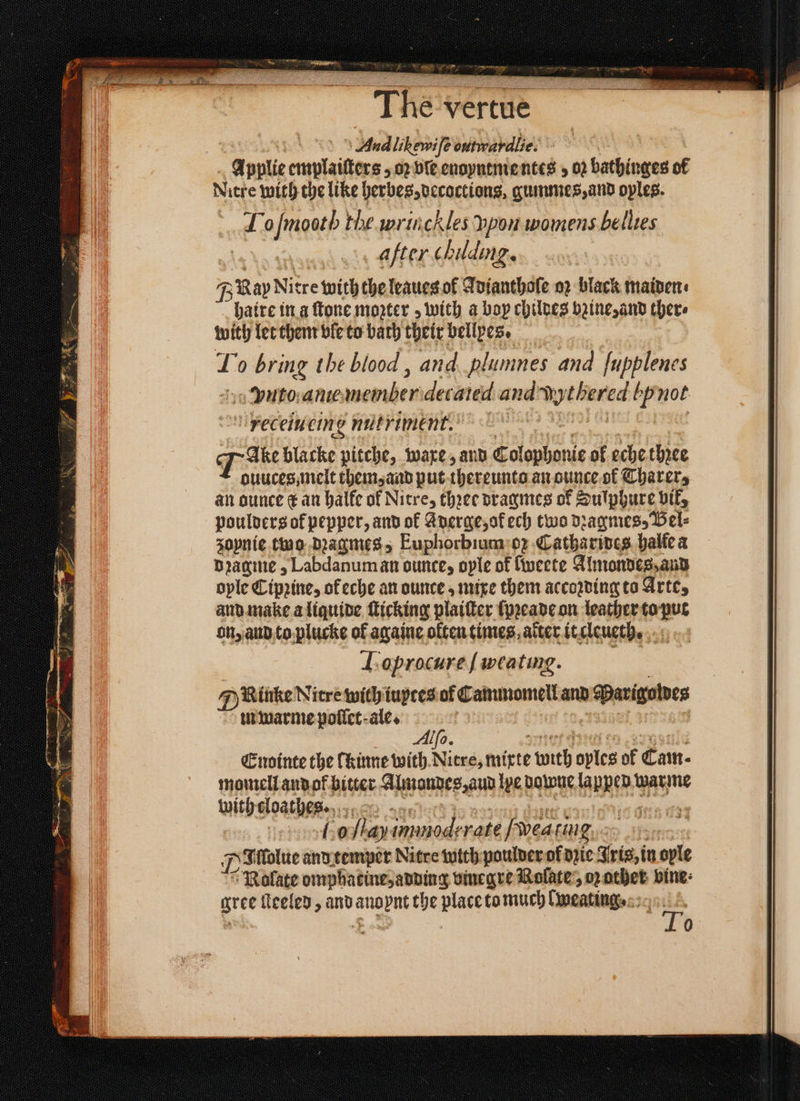 The vertue
And likewiſe outwardlie.
Applie emplaiſters, or vſe enoyntmentes, or bathinges of
Nitre with the like herbes, decoctions, gummes, and oyles.
To ſmooth the wrinckles vpon womens bellies
after childing.
Ray Nitre with the leaues of Adianthoſe or black maiden-
haire in a ſtone morter, with a boy childes brine, and ther-
with let them vſe to bath their bellyes.
To bring the blood, and plumnes and ſupplenes
vnto anie member decaied and wythered by not
receiueing nutriment.
TAke blacke pitche, waxe, and Colophonie of eche three
ounces, melt them, and put thereunto an ounce of Tharer,
an ounce & an halfe of Nitre, three dragmes of Sulphure vif,
poulders of pepper, and of Auerge, of ech two dragmes, Bel-
zopnie two dragmes, Euphorbium or Catharides halfe a
dragme, Labdanum an ounce, oyle of ſweete Almondes, and
oyle Ciprine, of eche an ounce, mixe them according to Arte,
and make a liquide ſticking plaiſter ſpreade on leather to put
on, and to plucke of againe often times, after it cleueth.
To procure ſweating.
DRinke Nitre with iuyces of Cammomell and Marigoldes
in warme poſſet-ale.
Alſo.
Enointe the ſkinne with Nitre, mixte with oyles of Cam-
momell and of bitter Almondes, and lye downe lapped warme
with cloathes.
To ſtay immoderate ſweating.
DIſſolue and temper Nitre with poulder of drie Iris, in oyle
Roſate omphatine, adding vinegre Roſate, or other vine-
gree ſteeled, and anoynt the place to much ſweating.
To